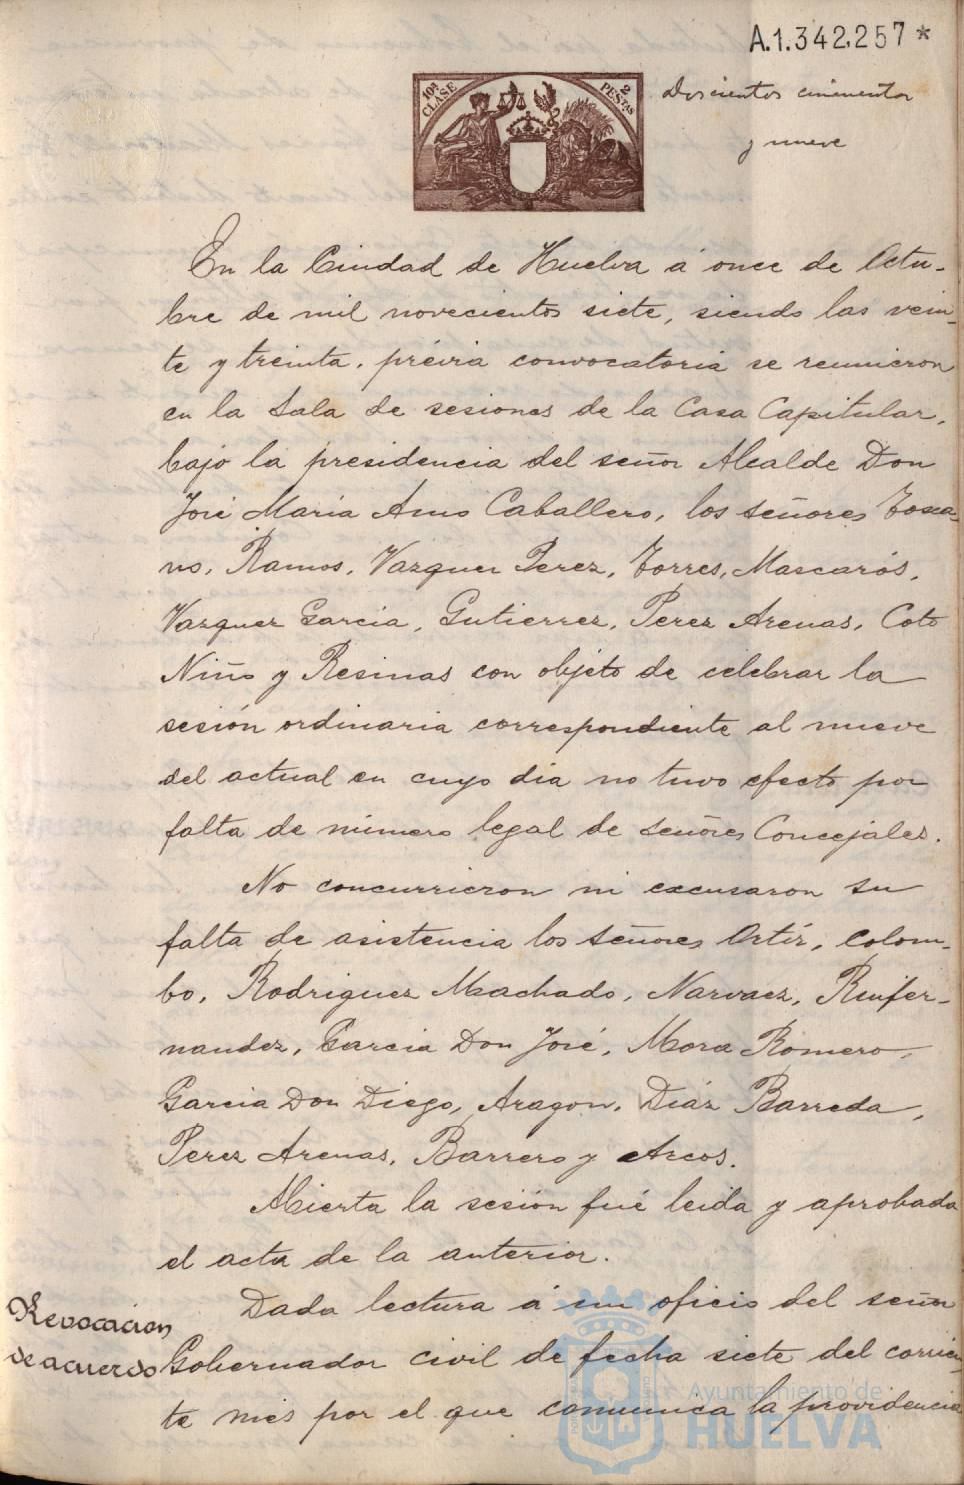 A.1.342.257 *
10ª CLASE
2 PESTAS
Doscientos cincuenta
y nueve
En la Ciudad de Huelva á once de Octu-
bre de mil novecientos siete, siendo las vein-
te y treinta, prévia convocatoria se reunieron
en la Sala de sesiones de la Casa Capitular,
bajo la presidencia del señor Alcalde Don
José Maria Amo Caballero, los señores Tosca-
no, Ramos, Vazquez Perez, Torres, Mascarós,
Vazquez Garcia, Gutierrez, Perez Arenas, Coto
Niño y Resinas con objeto de celebrar la
sesión ordinaria correspondiente al nueve
del actual en cuyo dia no tuvo efecto por
falta de número legal de señores Concejales.
No concurrieron ni excusaron su
falta de asistencia los señores Ortiz, Colom-
bo, Rodriguez Machado, Narvaez, Ruifer-
nandez, Garcia Don José, Mora Romero,
Garcia Don Diego, Aragon, Diáz Barreda,
Perez Arenas, Barrero y Arcos.
Abierta la sesión fué leida y aprobada
el acta de la anterior.
Dada lectura á un oficio del señor
Revocación
de acuerdo
Gobernador civil de fecha siete del corrien-
te mes por el que comunica la providencia
Ayuntamiento de
HUELVA